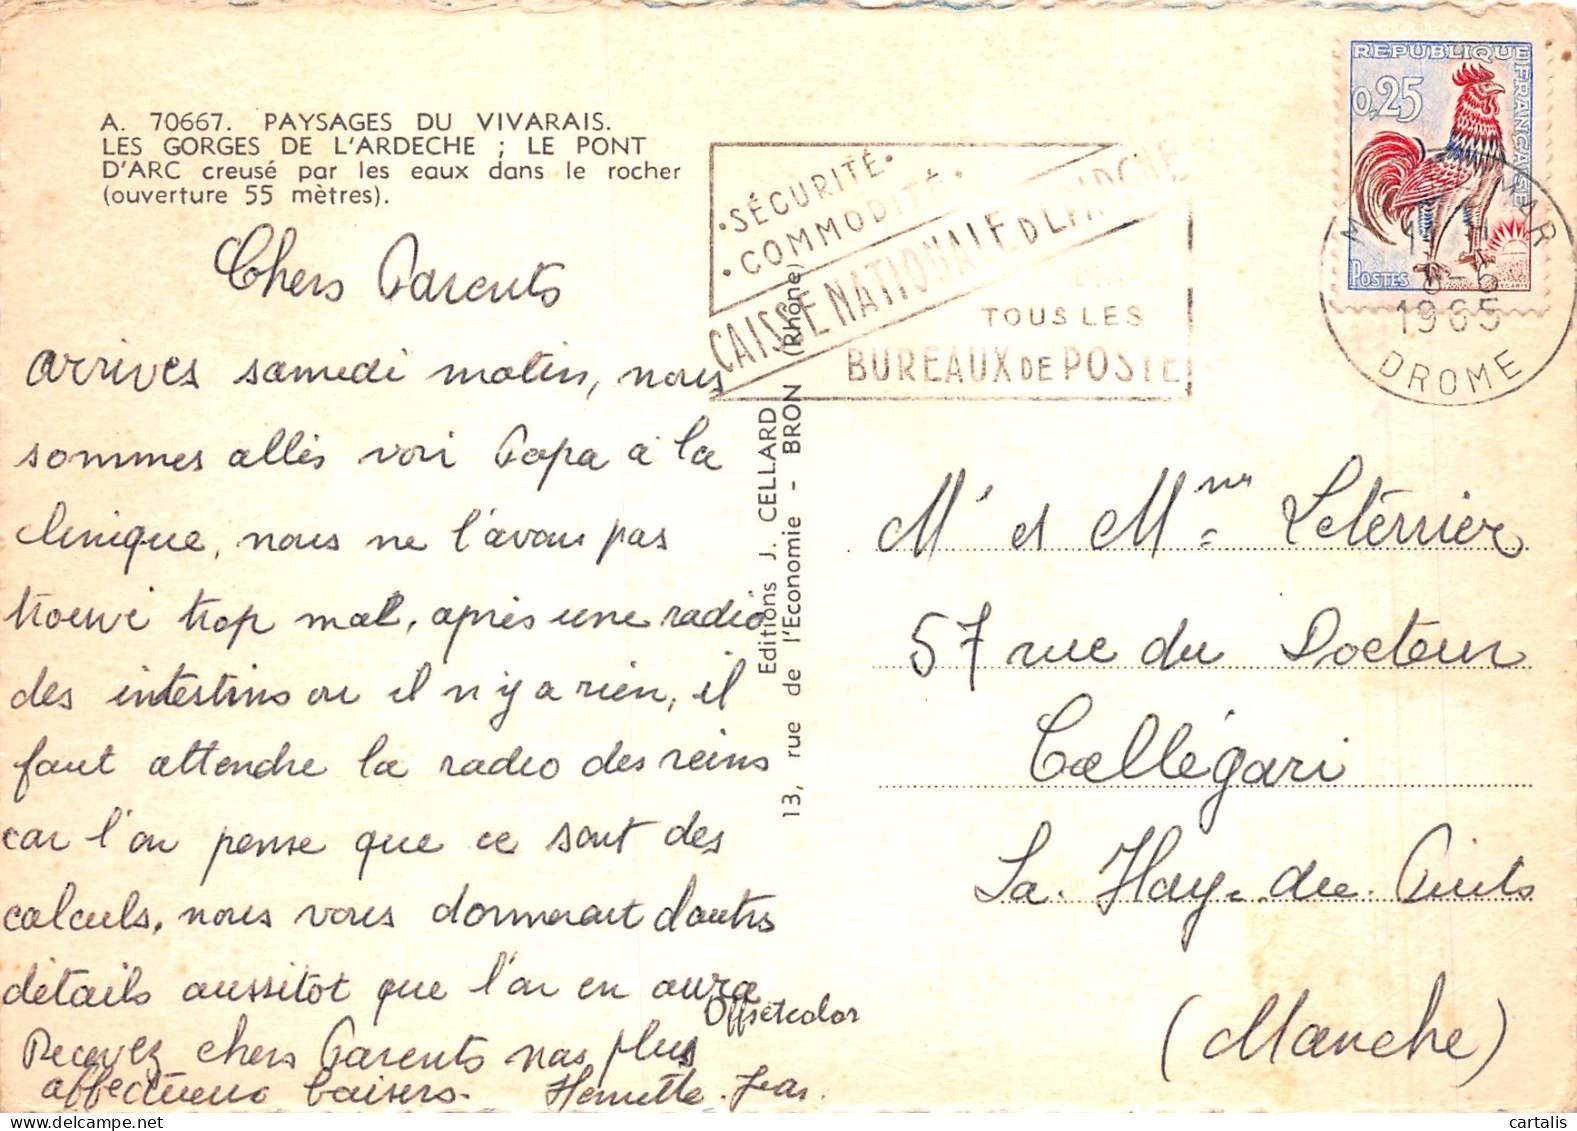 A. 70667. PAYSAGES DU VIVARAIS.
LES GORGES DE L'ARDECHE ; LE PONT
D'ARC creusé par les eaux dans le rocher
(ouverture 55 mètres).
Chers Parents
arrivés samedi matin, nous
sommes allés voir Papa à la
clinique, nous ne l'avons pas
trouvé trop mal, après une radio
des intestins ou il n'y a rien, il
faut attendre la radio des reins
car l'on pense que ce sont des
calculs, nous vous donnerons d'autres
détails aussitot que l'on en aura
Recevez chers Parents nos plus
affectueux baisers. Henriette. Jean.
Offsetcolor
Editions J. CELLARD
13, rue de l'Economie - BRON (Rhône)
SÉCURITÉ
COMMODITÉ
CAISSE NATIONALE D'EPARGNE
TOUS LES
BUREAUX DE POSTE
REPUBLIQUE FRANÇAISE
0,25
POSTES
1965
DROME
Mr et Mme Letérrier
57 rue du Docteur
Callégari
La Hay-du-Puits
(Manche)
cartalis